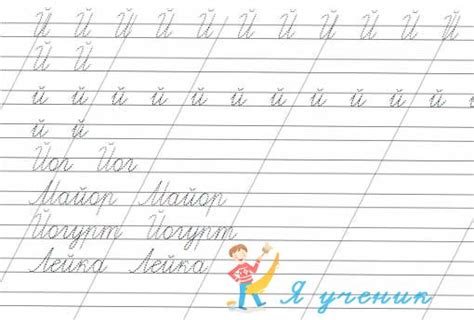 Й Й Й Й Й Й Й Й Й Й Й
Й Й
й й й й й й й й й й й й
й й
Йог Йог
Майор Майор
Йогурт Йогурт
Лейка Лейка
Я ученик